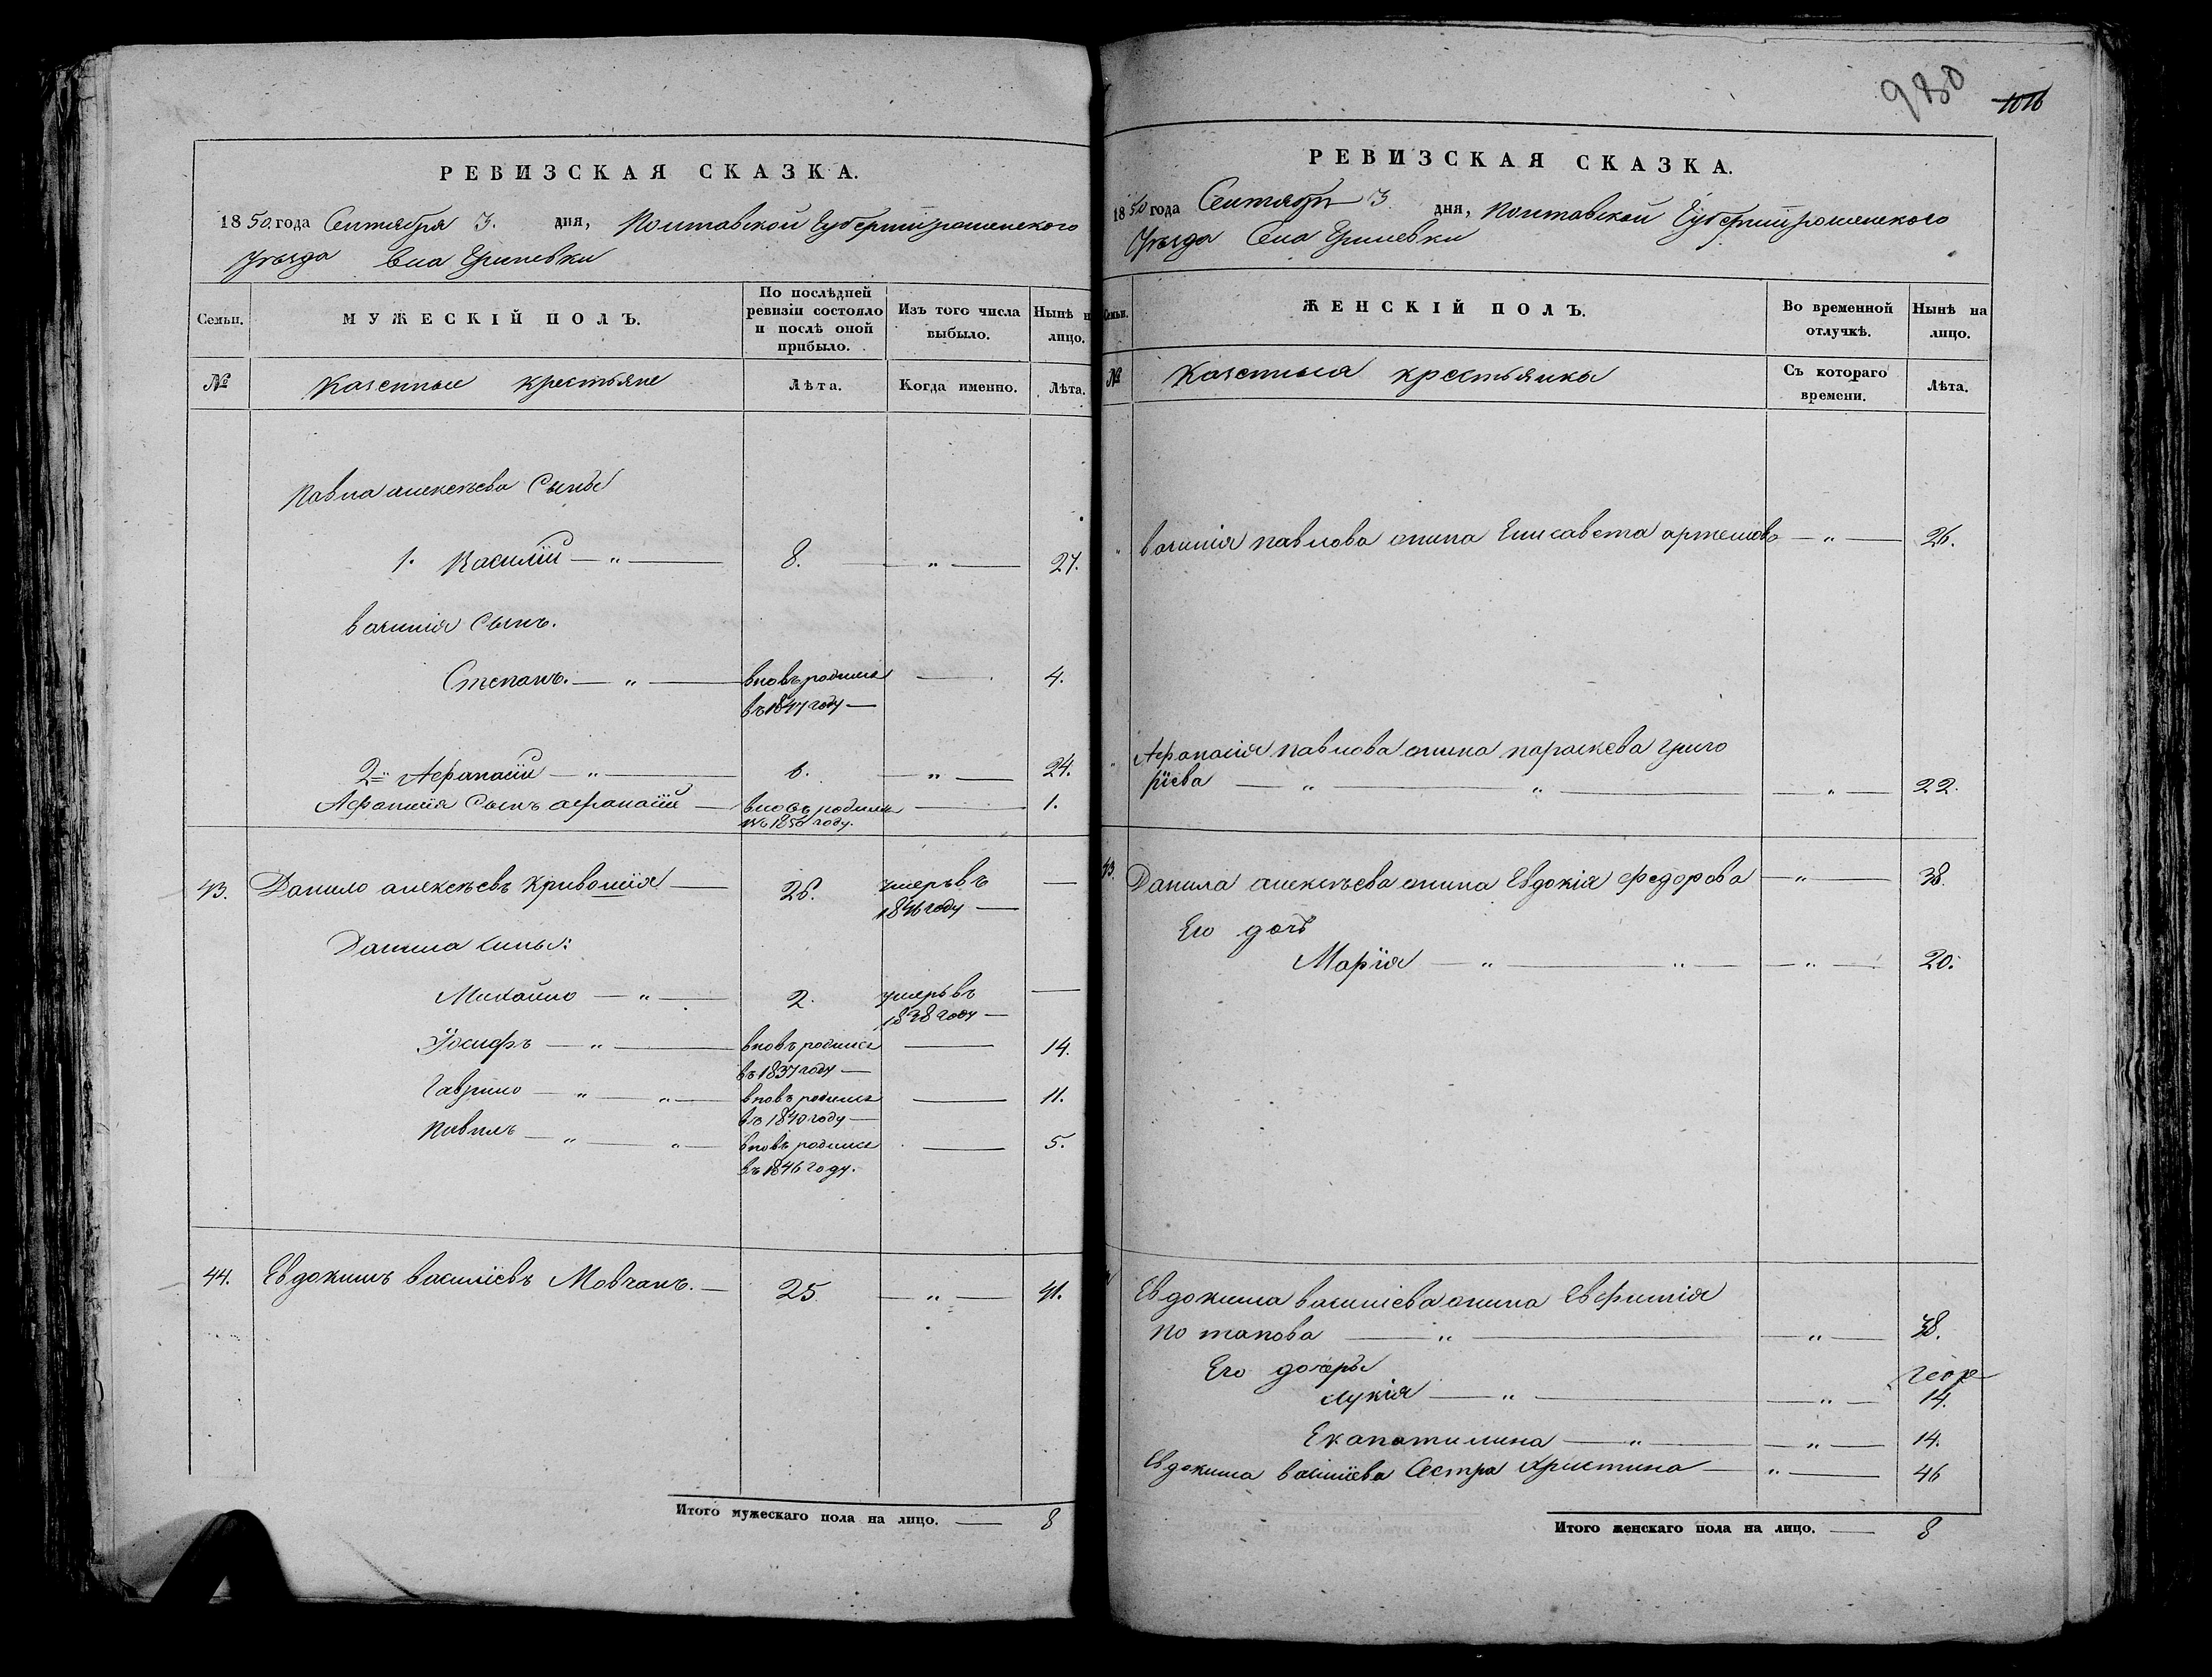 РЕВИЗСКАЯ СКАЗКА.
1850 года Сентября 3. дня, Полтавской Губернии роменского
Уѣзда Села Гриневки
Семьи.
МУЖЕСКІЙ ПОЛЪ.
По послѣдней ревизіи состояло и послѣ оной прибыло.
Изъ того числа выбыло.
Нынѣ н лицо.
№
Казенные крестьяне
Лѣта.
Когда именно.
Лѣта.
Павла алексѣева Сыны
1. Василій — " — 8. — " — 27.
василія Сынъ.
Степанъ. — " — вновь родился — 4.
въ 1847 году —
2й Афанасій — " — 6. — " — 24.
Афанасія Сынъ афанасій — вновь родился — 1.
въ 1850 году.
43. Данило алексѣевъ Кривошія — 26. умеръ въ —
1846 году —
Данила сыны:
Михайло — " — 2. умеръ въ —
1838 году —
Іосифъ — " — вновь родился — 14.
въ 1837 году —
Гаврило — " — " — вновь родился — 11.
въ 1840 году —
Павелъ — " — " — вновь родился — 5.
въ 1846 году.
44. Евдокимъ василіевъ Мовчанъ. — 25 — " — 41.
Итого мужескаго пола на лицо. — 8
980
1016
РЕВИЗСКАЯ СКАЗКА.
1850 года Сентября 3. дня, Полтавской Губернии роменского
Уѣзда Села Гриневки
Семьи.
ЖЕНСКІЙ ПОЛЪ.
Во временной отлучкѣ.
Нынѣ на лицо.
№
Казенныя крестьянки
Съ котораго времени.
Лѣта.
" василія павлова жена Елисавета артемова — " — 26.
" Афанасія павлова жена параскева григо
ріева — " — " — " — 22.
43. Данила алексѣева жена Евдокія федорова — " — 38.
Его дочь
Марія — " — " — " — 20.
Евдокима василіева жена Евфимія
потапова — " — " — 38.
Его дочеры
Лукія — " — " — 14.
Екапатилина — " — " — 14.
Евдокима василіева Сестра Христина — " — 46
Итого женскаго пола на лицо. — 8